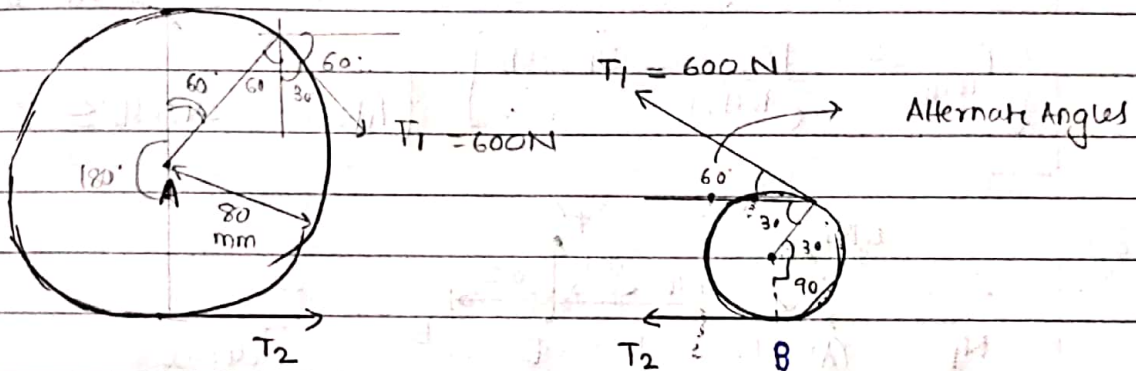 60°
60
30
60°
T1 = 600N
180°
A
80
mm
T2
T1 = 600 N
Alternate Angles
60°
30
30°
90
T2
B